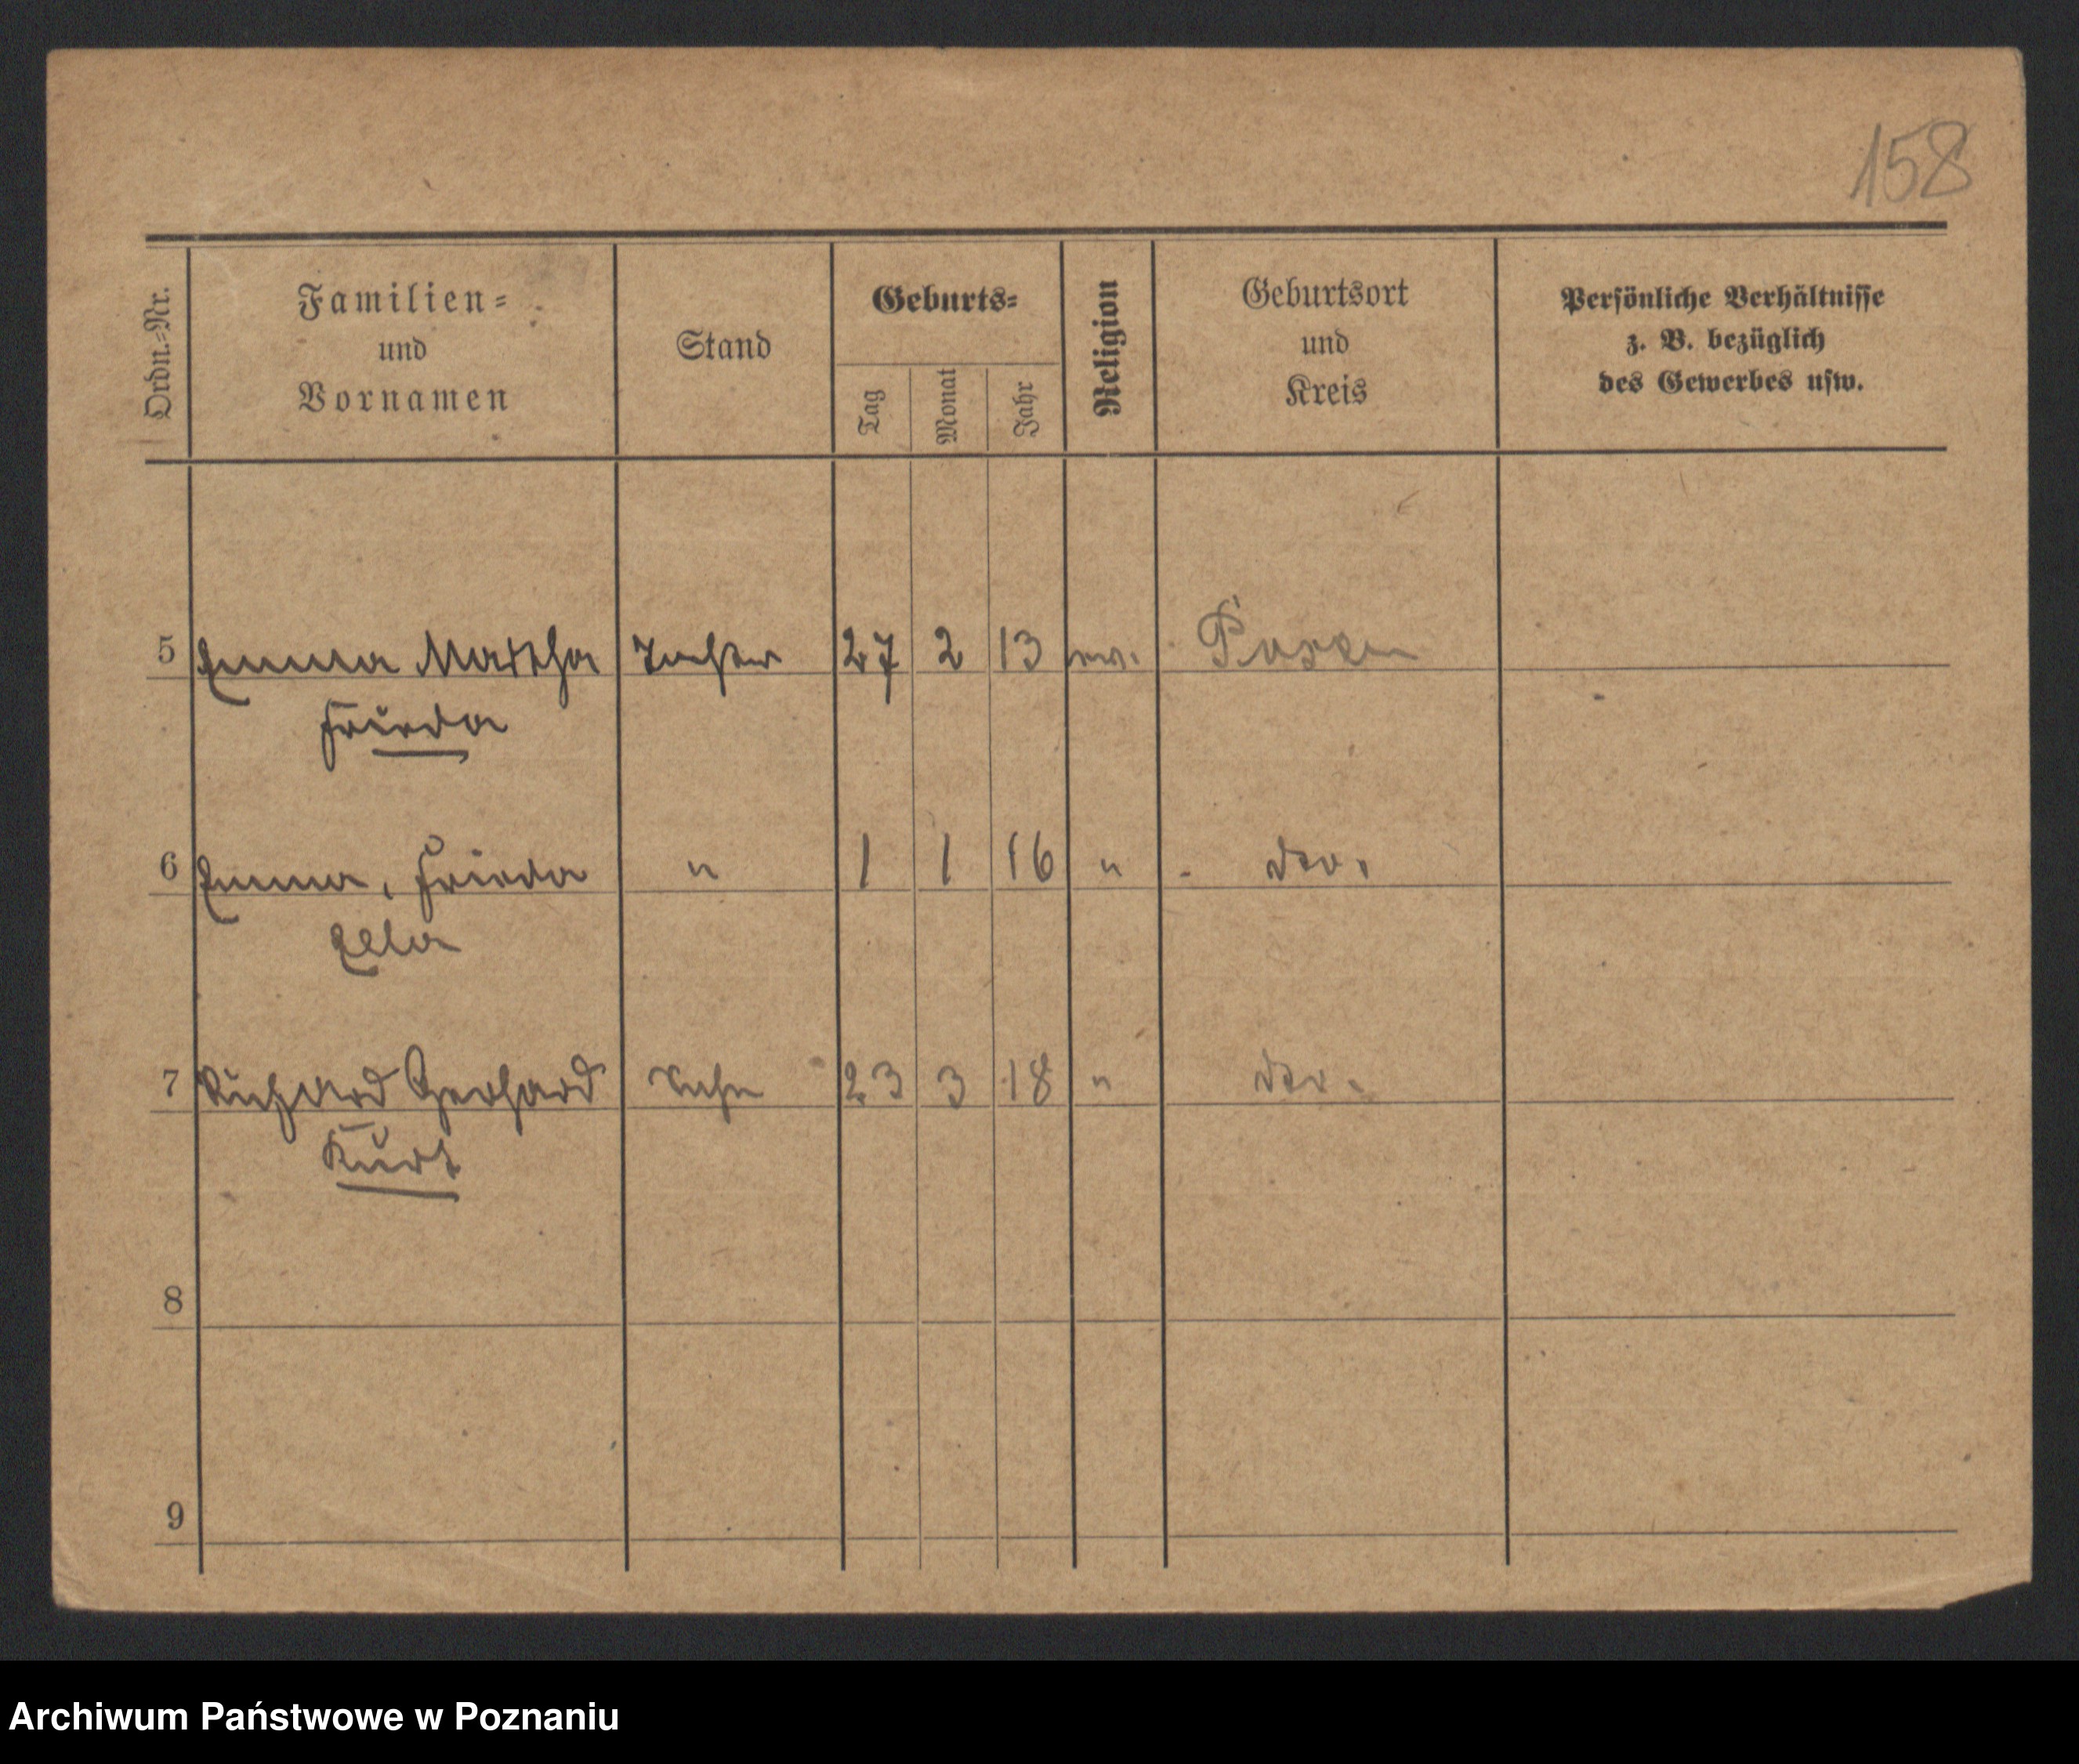 158
Ordn.-Nr.
Familien-
und
Vornamen
Stand
Geburts-
Tag
Monat
Jahr
Religion
Geburtsort
und
Kreis
Persönliche Verhältnisse
z. B. bezüglich
des Gewerbes usw.
5 Emma Martha Tochter 27 2 13 ev. Posen
Frieda
6 Emma, Frieda " 1 1 16 " dto.
Ella
7 Richard Gerhard Sohn 23 3 18 " dto.
Kurt
8
9
Archiwum Państwowe w Poznaniu